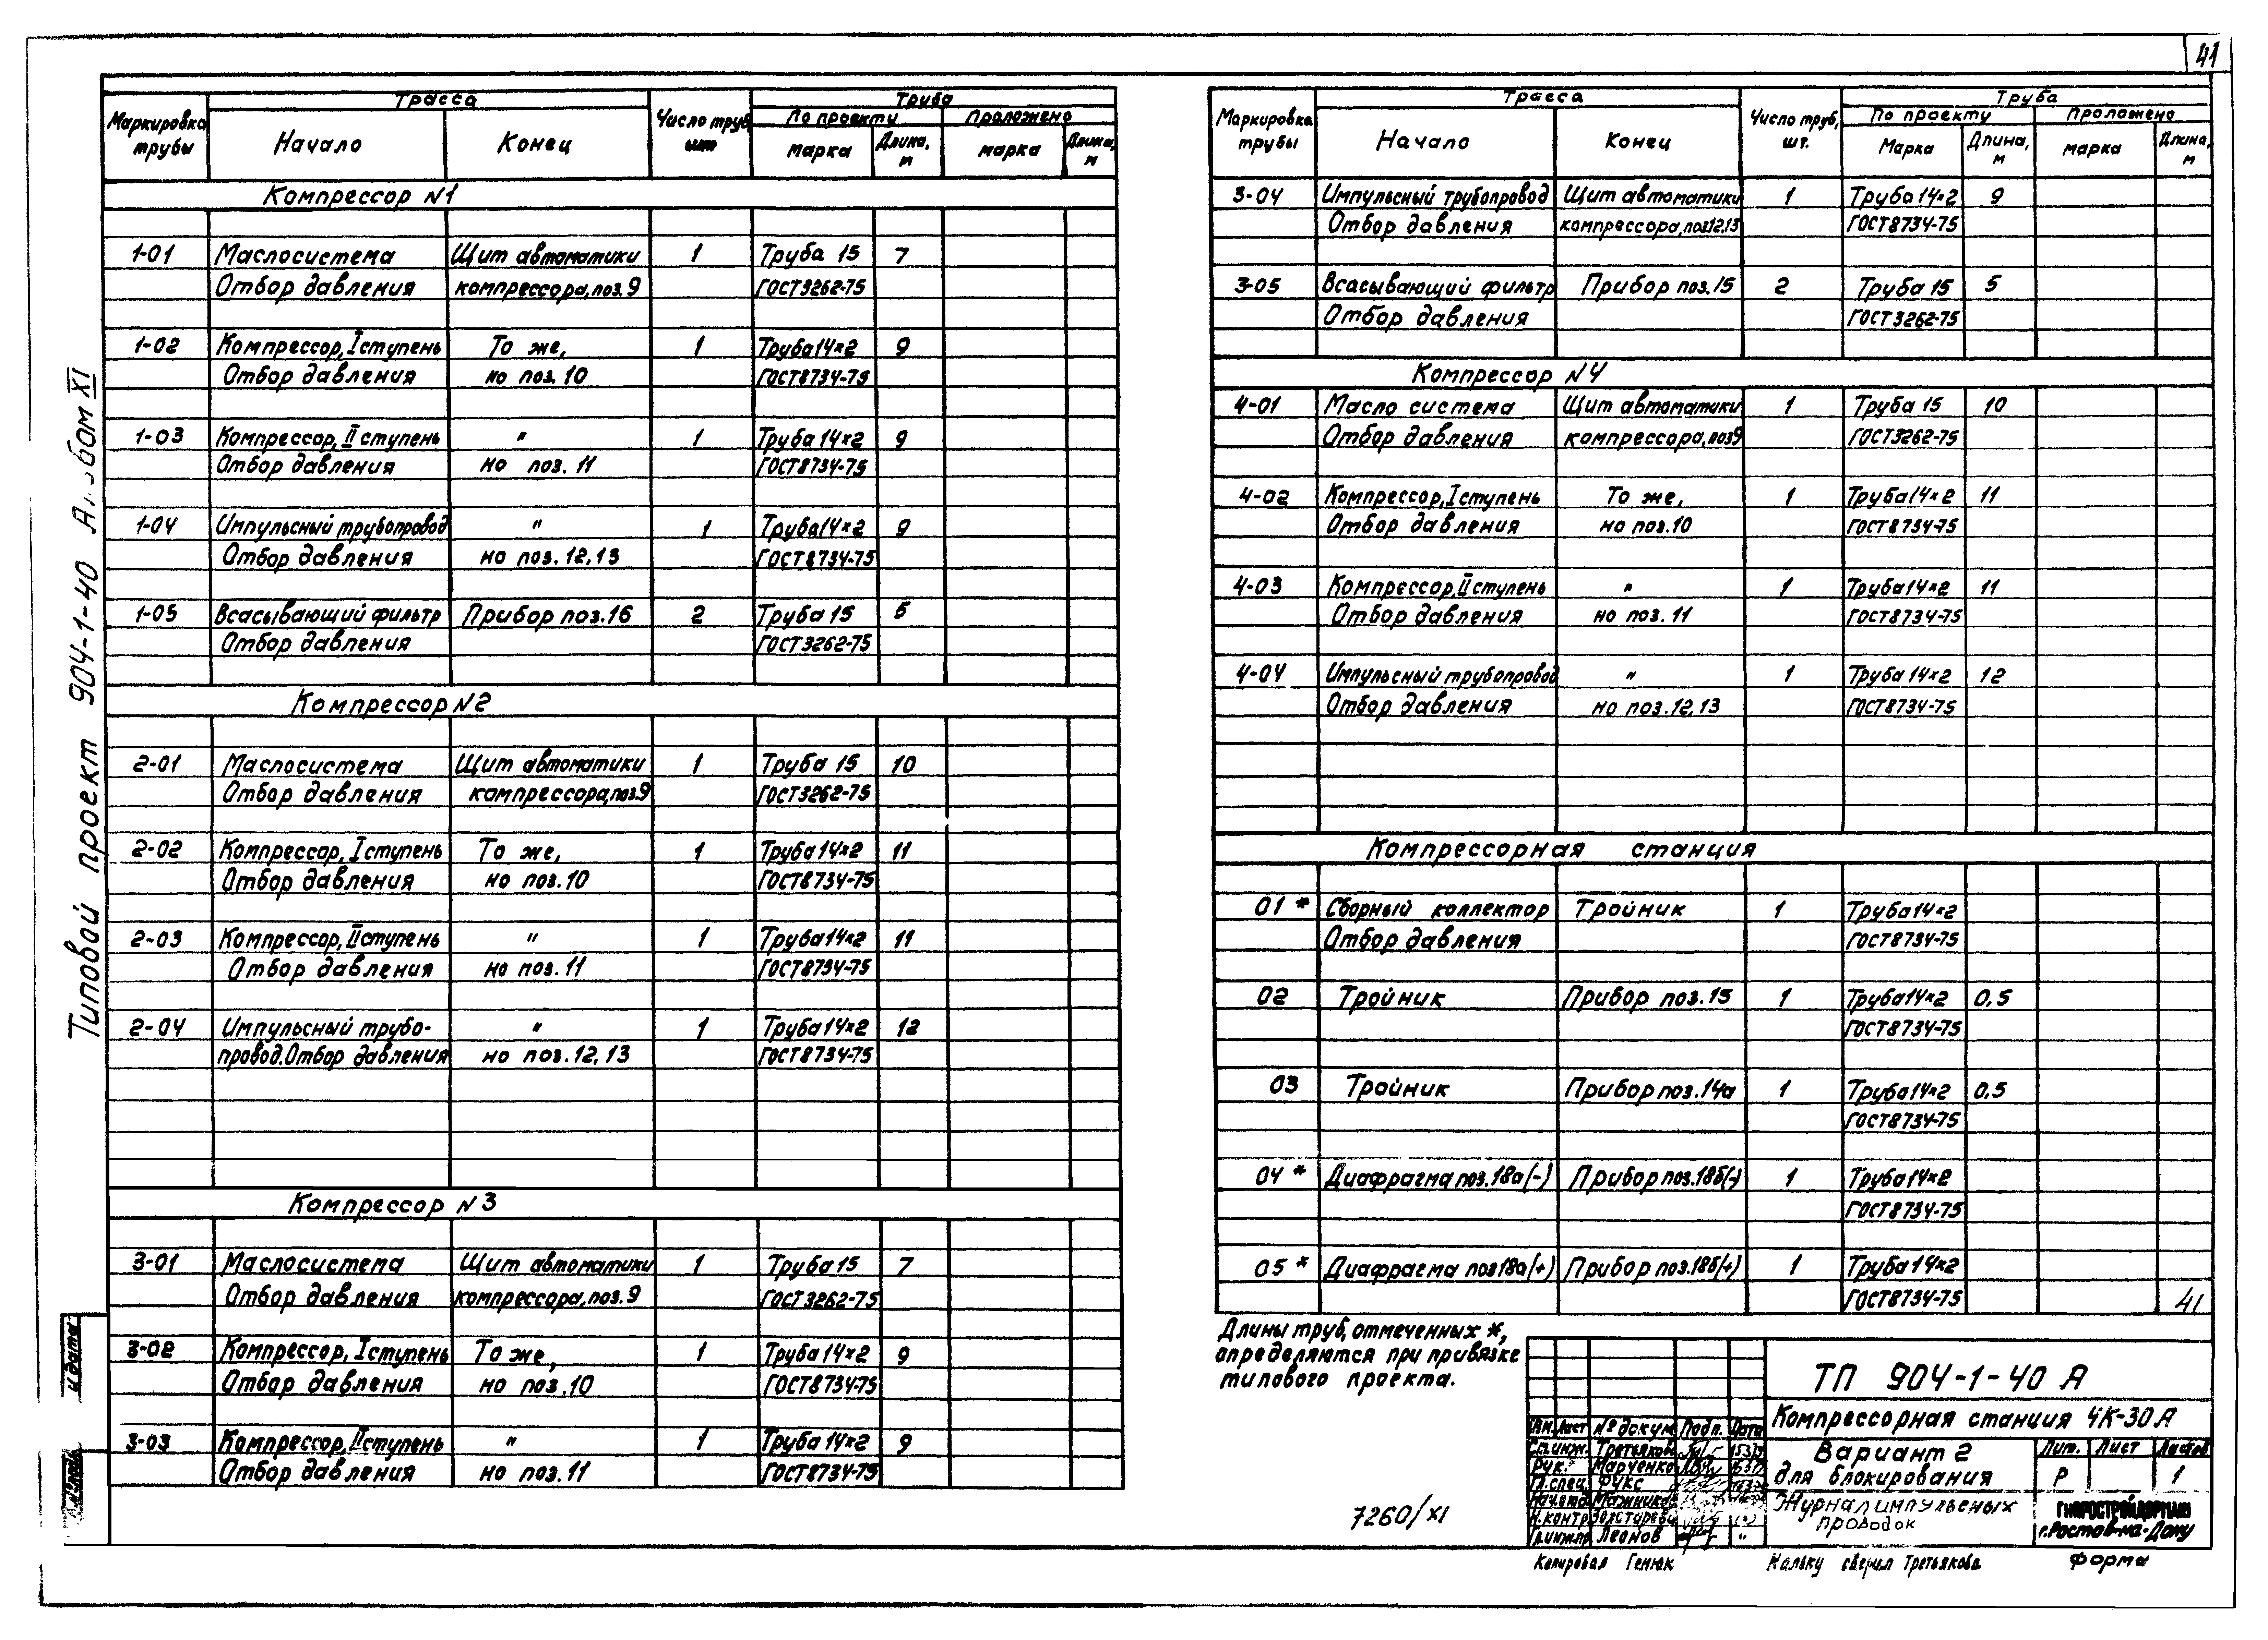 41
Типовой проект 904-1-40 Альбом XI
Маркировка трубы | Трасса | Число труб, шт | Труба
Начало | Конец | По проекту | Проложено
марка | Длина, м | марка | Длина, м
Компрессор N1
1-01 Маслосистема Щит автоматики 1 Труба 15 7
Отбор давления компрессора, поз. 9 ГОСТ 3262-75
1-02 Компрессор, I ступень То же, 1 Труба 14×2 9
Отбор давления но поз. 10 ГОСТ 8734-75
1-03 Компрессор, II ступень " 1 Труба 14×2 9
Отбор давления но поз. 11 ГОСТ 8734-75
1-04 Импульсный трубопровод " 1 Труба 14×2 9
Отбор давления но поз. 12,13 ГОСТ 8734-75
1-05 Всасывающий фильтр Прибор поз. 16 2 Труба 15 5
Отбор давления ГОСТ 3262-75
Компрессор N2
2-01 Маслосистема Щит автоматики 1 Труба 15 10
Отбор давления компрессора, поз. 9 ГОСТ 3262-75
2-02 Компрессор, I ступень То же, 1 Труба 14×2 11
Отбор давления но поз. 10 ГОСТ 8734-75
2-03 Компрессор, II ступень " 1 Труба 14×2 11
Отбор давления но поз. 11 ГОСТ 8734-75
2-04 Импульсный трубо- " 1 Труба 14×2 12
провод. Отбор давления но поз. 12,13 ГОСТ 8734-75
Компрессор N3
3-01 Маслосистема Щит автоматики 1 Труба 15 7
Отбор давления компрессора, поз. 9 ГОСТ 3262-75
3-02 Компрессор, I ступень То же, 1 Труба 14×2 9
Отбор давления но поз. 10 ГОСТ 8734-75
3-03 Компрессор, II ступень " 1 Труба 14×2 9
Отбор давления но поз. 11 ГОСТ 8734-75
Маркировка трубы | Трасса | Число труб, шт. | Труба
Начало | Конец | По проекту | Проложено
Марка | Длина, м | марка | Длина, м
3-04 Импульсный трубопровод Щит автоматики 1 Труба 14×2 9
Отбор давления компрессора, поз. 12,13 ГОСТ 8734-75
3-05 Всасывающий фильтр Прибор поз. 15 2 Труба 15 5
Отбор давления ГОСТ 3262-75
Компрессор N4
4-01 Масло система Щит автоматики 1 Труба 15 10
Отбор давления компрессора, поз 9 ГОСТ 3262-75
4-02 Компрессор, I ступень То же, 1 Труба 14×2 11
Отбор давления но поз. 10 ГОСТ 8734-75
4-03 Компрессор, II ступень " 1 Труба 14×2 11
Отбор давления но поз. 11 ГОСТ 8734-75
4-04 Импульсный трубопровод " 1 Труба 14×2 12
Отбор давления но поз. 12,13 ГОСТ 8734-75
Компрессорная станция
01 * Сборный коллектор Тройник 1 Труба 14×2
Отбор давления ГОСТ 8734-75
02 Тройник Прибор поз. 15 1 Труба 14×2 0,5
ГОСТ 8734-75
03 Тройник Прибор поз. 14а 1 Труба 14×2 0,5
ГОСТ 8734-75
04 * Диафрагма поз. 18а (-) Прибор поз. 18б (-) 1 Труба 14×2
ГОСТ 8734-75
05 * Диафрагма поз 18а (+) Прибор поз. 18б (+) 1 Труба 14×2
ГОСТ 8734-75 41
Длины труб, отмеченных *,
определяются при привязке
типового проекта.
7260/XI
и дата
ТП 904-1-40 А
Компрессорная станция 4К-30А
Изм. Лист № докум Подп. Дата
Ст. инж. Третьякова
Рук. Марченко
Гл. спец. Фукс
Нач. отд Мажников
Н. контр
Гл. инж. пр Леонов
Вариант 2
для блокирования
Лит. Лист Листов
Р 1
Журнал импульсных
проводок
ГИПРОСТРОЙДОРМАШ
г. Ростов-на-Дону
Копировал Генюк
Кальку сверил Третьякова
Форма